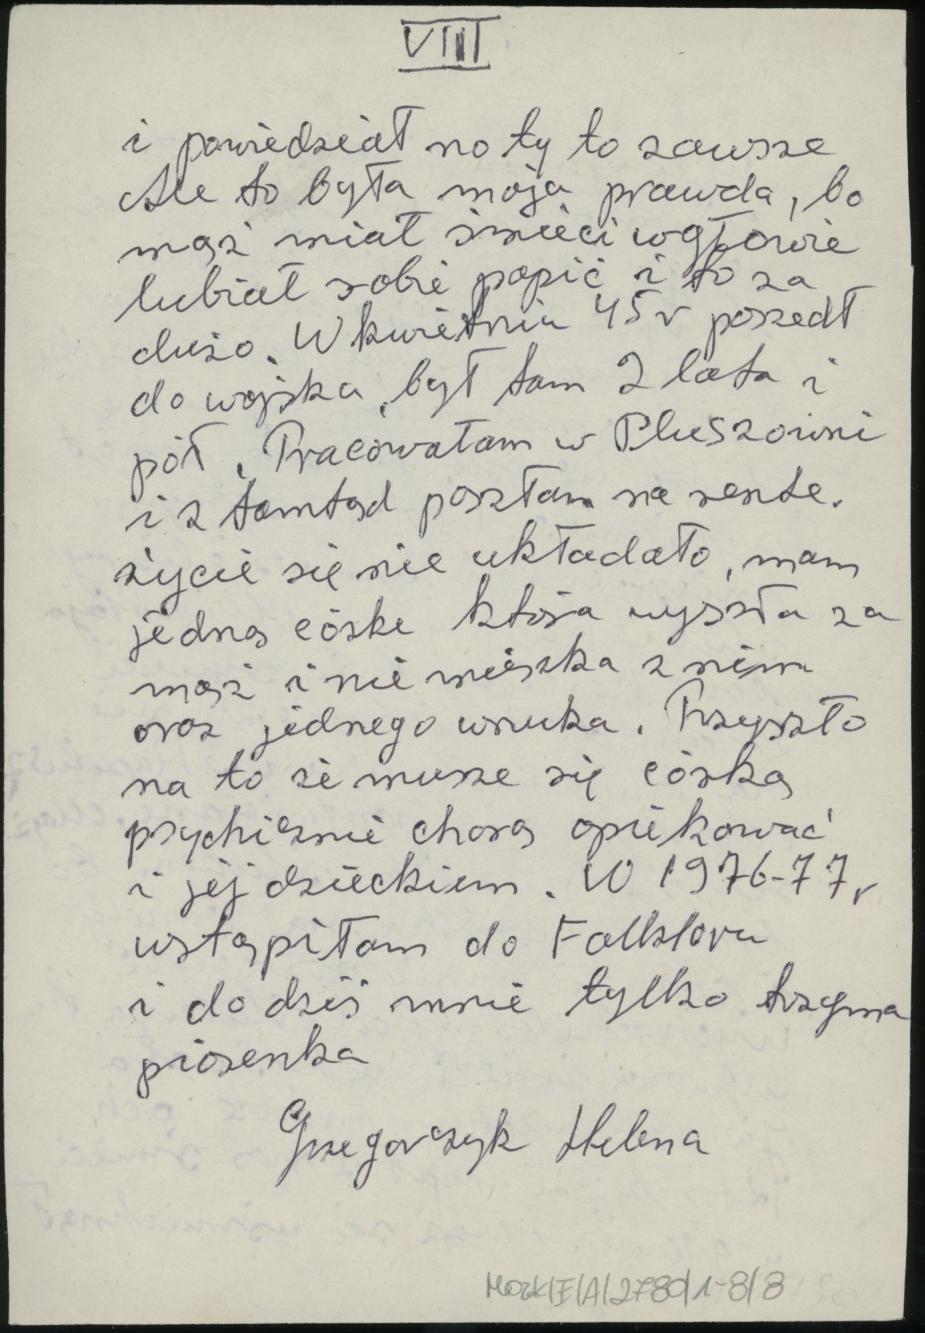 VIII
i powiedział no ty to zawsze
Ale to była moja prawda, bo
mąż miał śmieci w głowie
lubiał sobie popić i to za
dużo. W kwietniu 45 r poszedł
do wojska, był tam 2 lata i
pół. Pracowałam w Pluszowni
i z tamtąd poszłam na rente.
życie się nie układało, mam
jedną córke która wyszła za
mąż i nie mieszka z nim
oraz jednego wnuka. Przyszło
na to że musze się córką
psychicznie chorą opiekować
i jej dzieckiem. W 1976-77 r
wstąpiłam do Folkloru
i do dziś mnie tylko trzyma
piosenka
Grzegorczyk Helena
MOzK/E/A/2780/1-8/8